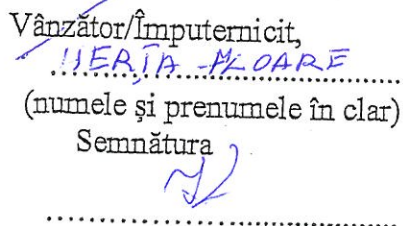 Vânzător/Împuternicit,
HERȚA - FLOARE
(numele și prenumele în clar)
Semnătura